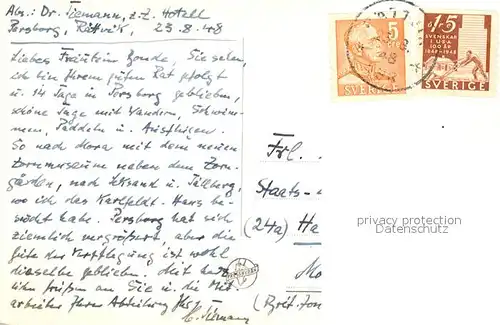 Abs.: Dr. Tiemann, z.Z. Hotell
Persborg, Rättvik, 23.8.48
Liebes Fräulein Bonde, Sie sehen,
ich bin Ihrem guten Rat gefolgt
u. 14 Tage in Persborg geblieben,
schöne Tage mit Wandern, Schwim-
men, Paddeln u. Ausflügen.
So nach Mora mit dem neuen
Zornmuseum neben dem Zorn-
gården, nach Leksand u. Tällberg,
wo ich das Karlfeldt-Haus be-
sucht habe. Persborg hat sich
ziemlich vergrößert, aber die
Güte der Verpflegung ist wohl
dieselbe geblieben. Mit herz-
lichen Grüßen an Sie u. die Mit-
arbeiter Ihrer Abteilung Ihr
H. Tiemann
5
SVERIGE
15
SVENSKAR
I USA
100 ÅR
1848-1948
SVERIGE
Frl.
Staats-
(24a) Ha
(Brit. Zon
privacy protection
Datenschutz